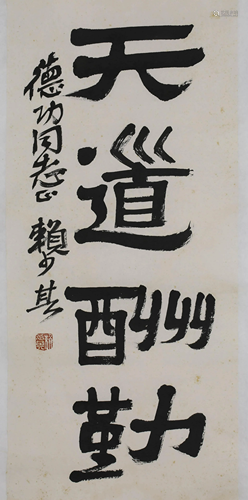 天道酬勤
德功同志正 賴少其